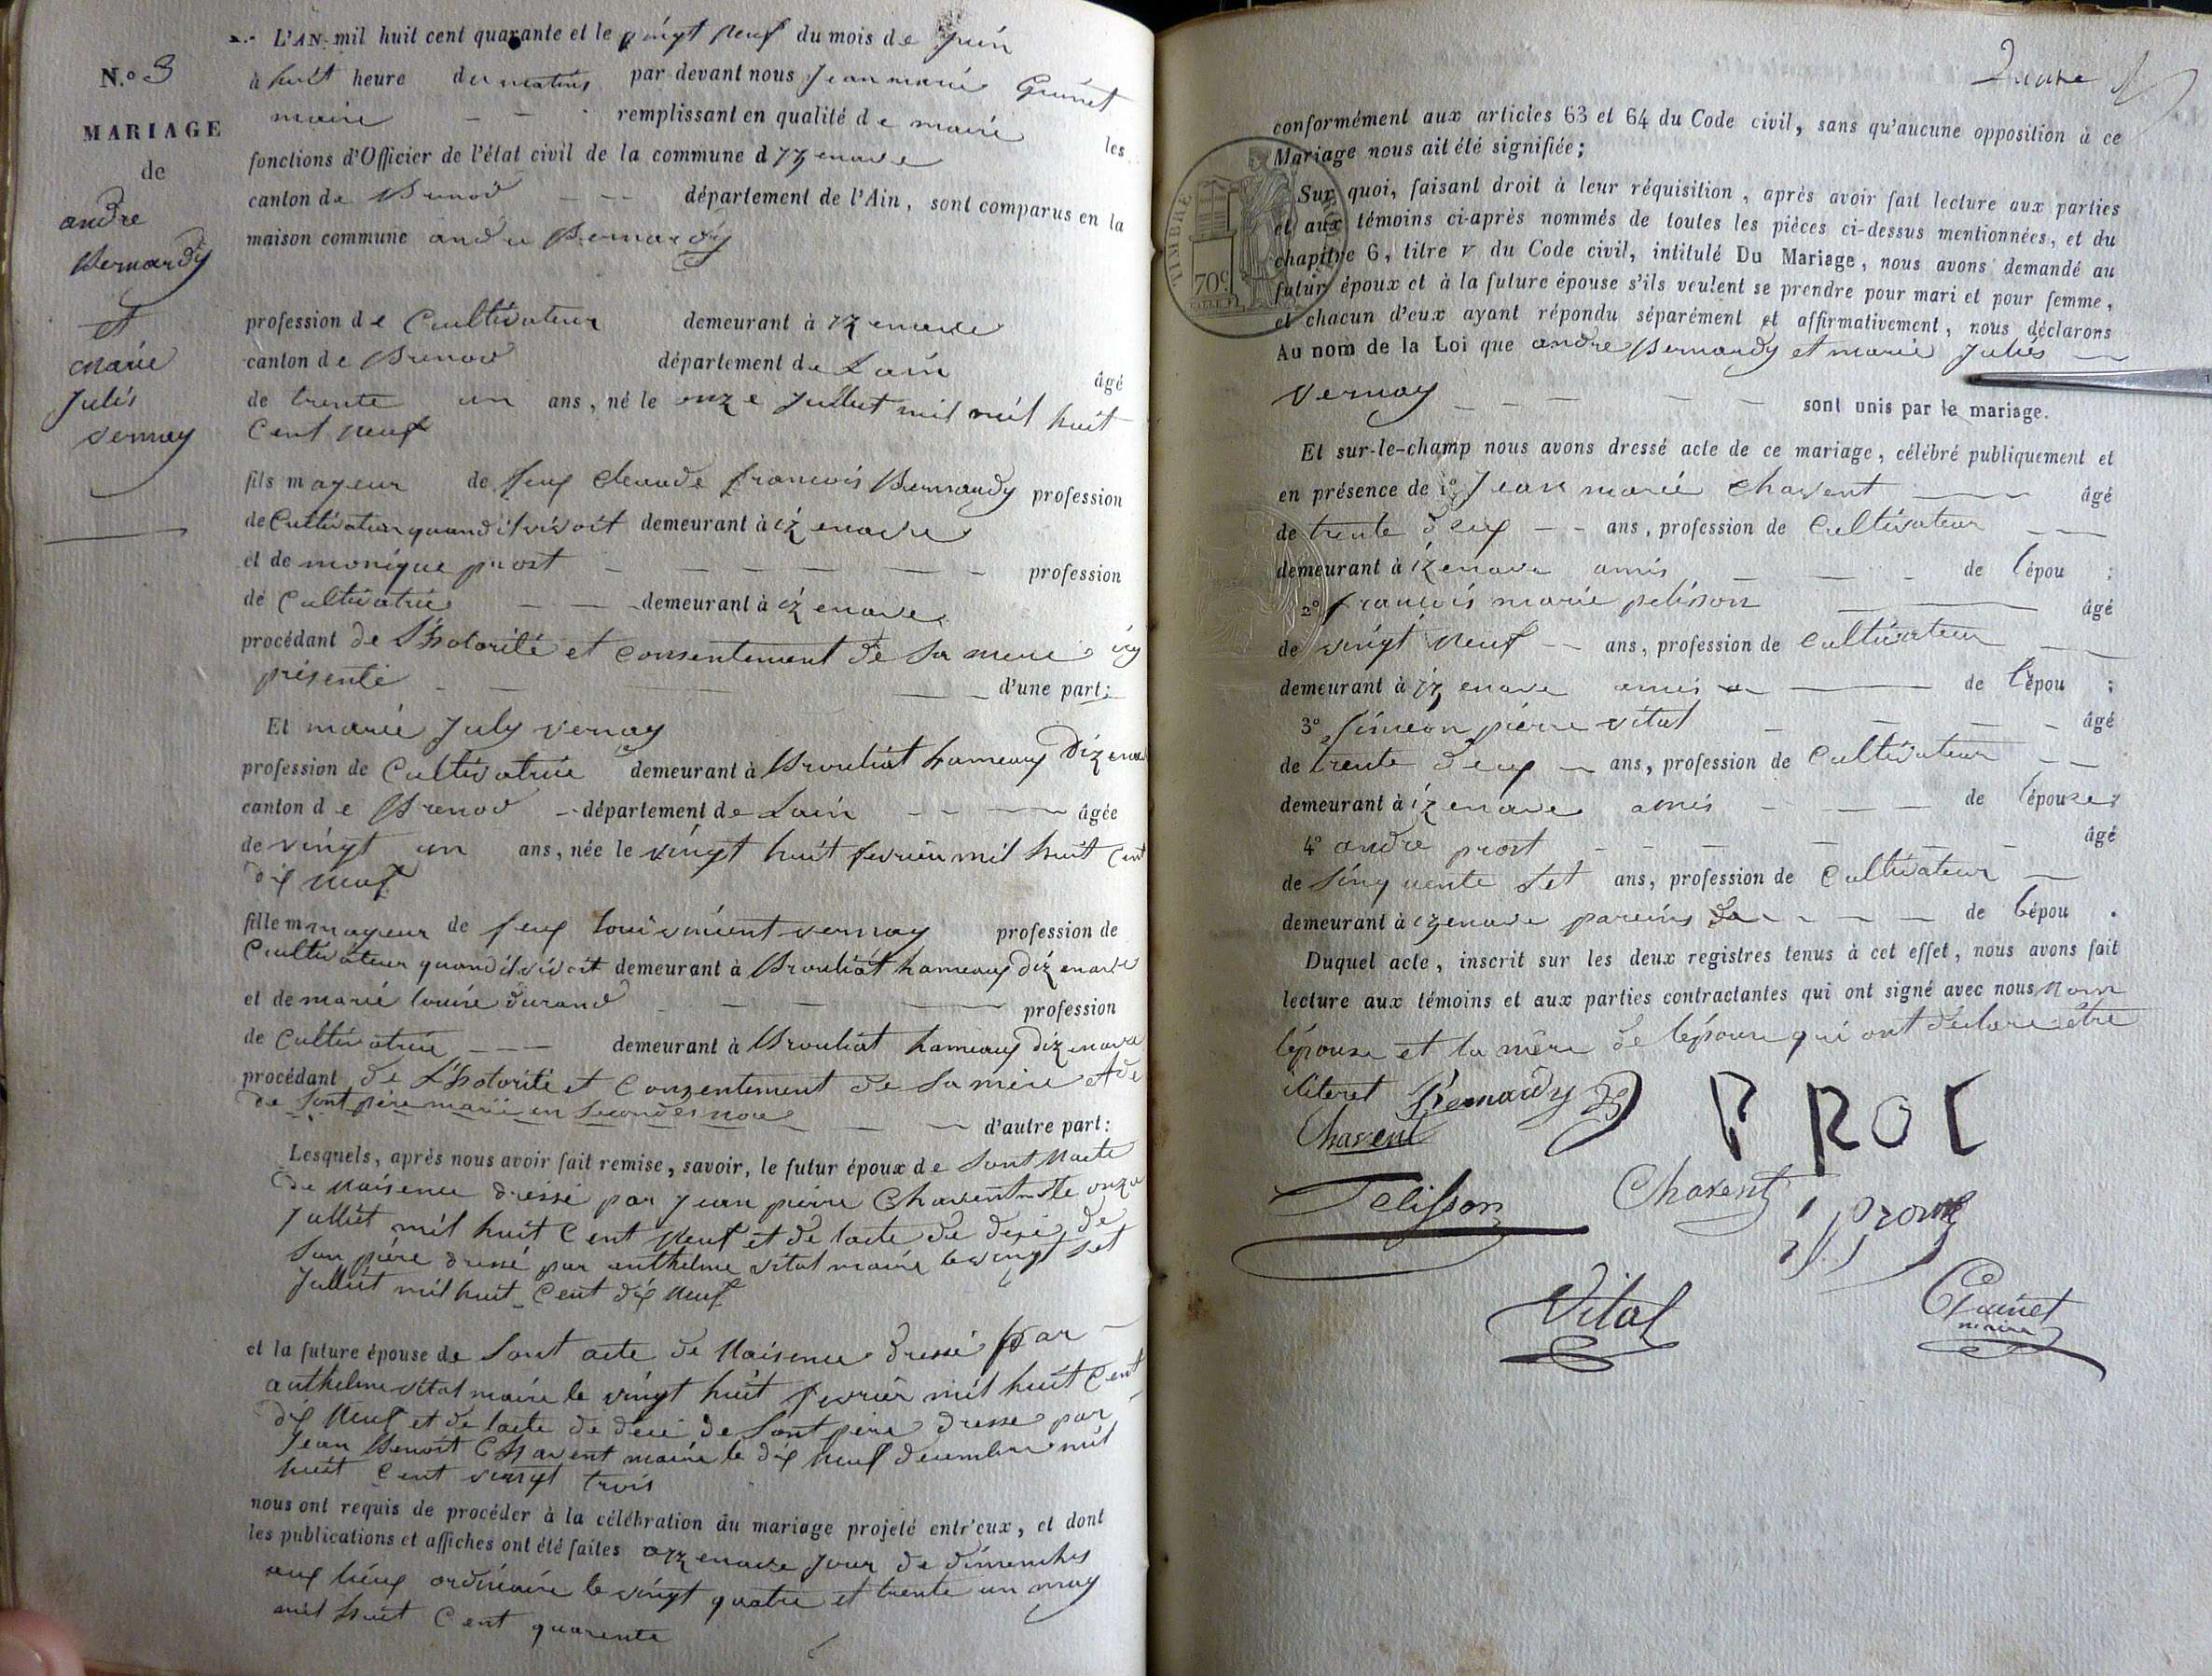 L'AN mil huit cent quarante et le vingt neuf du mois de Juin
N.o 3
à huit heure du matins par devant nous Jean marie Guinet
maire remplissant en qualité de maire les
MARIAGE
fonctions d'Officier de l'état civil de la commune d yzenave
de
canton de Brenod département de l'Ain, sont comparus en la
andre
maison commune andre Bernardy
Bernardy
et
profession de Cultivateur demeurant à yzenave
marie
canton de Brenod département de Lain âgé
Julis
de trente un ans, né le onze Julliet mil mil huit
vernay
Cent neuf
fils mayeur de feux Claude francois Bernardy profession
de Cultivateur quand il vivoit demeurant à izenave
et de monique prost profession
de Cultivatrice demeurant à izenave
procédant de L'hotorité et consentement de sa mere icy
présente d'une part:
Et marie July vernay
profession de Cultivatrice demeurant à Brouliat hameaux Dizenave
canton de Brenod département de Lain âgée
de vingt un ans, née le vingt huit fevrier mil huit Cent
dix neuf
fille mayeur de feux Loui vincent vernay profession de
Cultivateur quand il vivoit demeurant à Brouliat hameaux dizenave
et de marie louise durand profession
de Cultivatrice demeurant à Brouliat hameaux dizenave
procédant de L'hotorité et Conzentement de sa mère et de
de sont père marie en secondes noce
d'autre part:
Lesquels, après nous avoir fait remise, savoir, le futur époux de sont nacte
de naisence dressé par Jean pierre Charvent le onze
Julliet mil huit Cent neuf et de lacte de desé de
son père dressé par anthelme vital maire le vingt set
Julliet mil huit Cent dix neuf
et la future épouse de sont acte de naisence dressé par
anthelme vital maire le vingt huit fevrier mil huit Cent
dix neuf et de lacte de decé de sont père dresse par
Jean Benoit Charvent maire le dix neuf decembre mil
huit Cent vingt trois
nous ont requis de procéder à la célébration du mariage projeté entr'eux, et dont
les publications et affiches ont été faites a yzenave Jour de dimenches
aux lieux ordinaire le vingt quatre et trente un may
mil huit Cent quarente
conformément aux articles 63 et 64 du Code civil, sans qu'aucune opposition à ce
Mariage nous ait été signifiée;
Sur quoi, faisant droit à leur réquisition, après avoir fait lecture aux parties
et aux témoins ci-après nommés de toutes les pièces ci-dessus mentionnées, et du
chapitre 6, titre V du Code civil, intitulé Du Mariage, nous avons demandé au
futur époux et à la future épouse s'ils veulent se prendre pour mari et pour femme,
et chacun d'eux ayant répondu séparément et affirmativement, nous déclarons
Au nom de la Loi que andre Bernardy et marie Julies
vernay sont unis par le mariage.
TIMBRE
70c
Et sur-le-champ nous avons dressé acte de ce mariage, célébré publiquement et
en présence de 1o Jean marie Charvent âgé
de trente deux ans, profession de Cultivateur
demeurant à izenave amis de lépou ;
2o françois marie pelisson âgé
de vingt neuf ans, profession de Cultivateur
demeurant à yzenave amis de lépou ;
3o Simeon pierre vital âgé
de trente deux ans, profession de Cultivateur
demeurant à izenave amis de lépouze;
4o andre prost âgé
de sinquente set ans, profession de Cultivateur
demeurant à izenave pareins de lépou .
Duquel acte, inscrit sur les deux registres tenus à cet effet, nous avons fait
lecture aux témoins et aux parties contractantes qui ont signé avec nous non
lépouse et la mère de lépouse qui ont declare etre
literet Bernardy
PROC
Charvent
Pelisson Charvent
Vital Guinet
maire